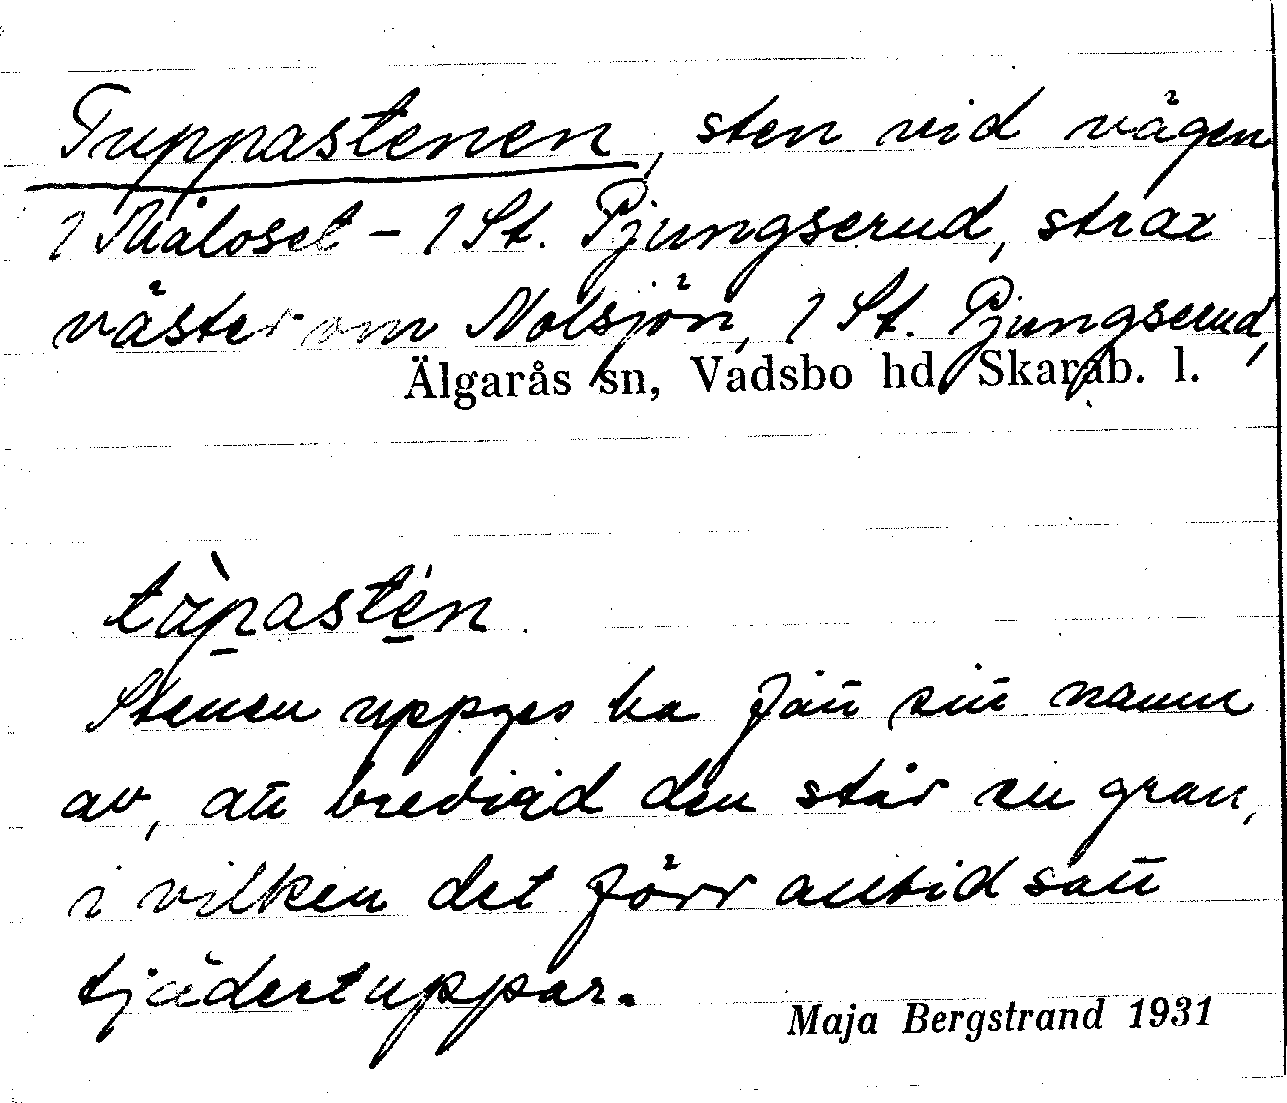 Tuppastenen, sten vid vägen
1 Måloset – 1 St. Pjungserud, strax
väster om Nolsjön, 1 St. Pjungserud,
Älgarås sn, Vadsbo hd, Skarab. l.
tàpastén
Stenen uppges ha fått sitt namn
av, att bredvid den står en gran,
i vilken det förr alltid satt
tjädertuppar.
Maja Bergstrand 1931